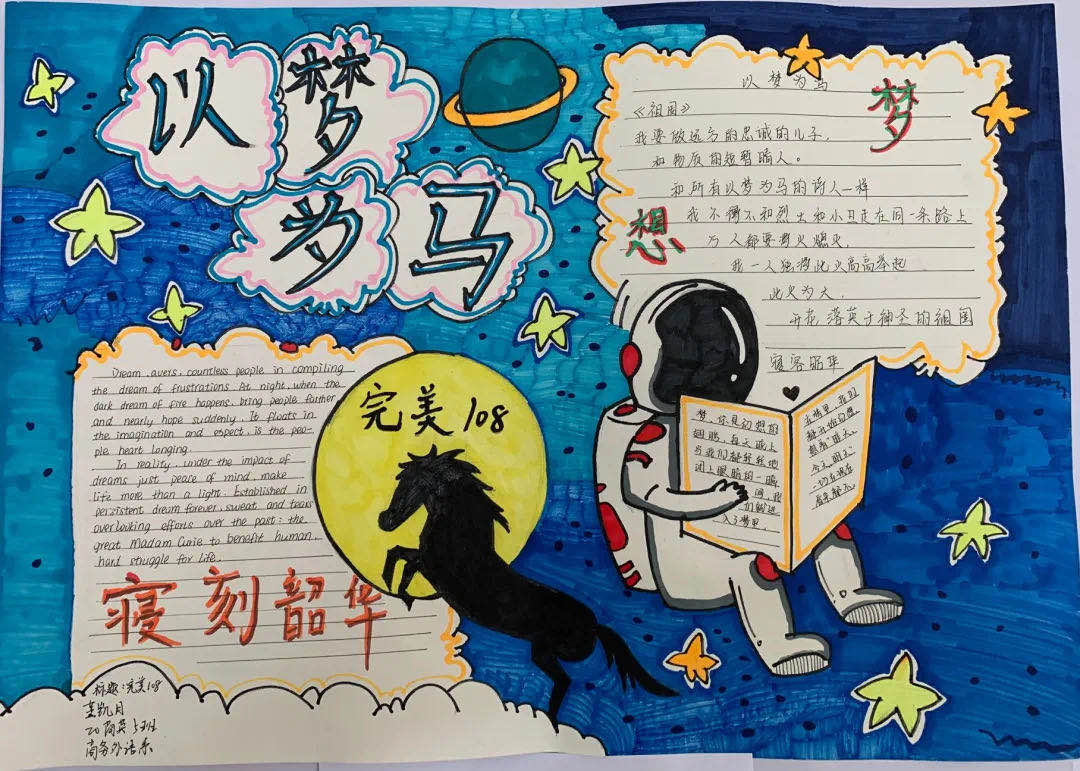 以梦为马
以梦为马
《祖国》
梦
我要做远方的忠诚的儿子,
和物质的短暂情人。
和所有以梦为马的诗人一样
想
我不得不和烈士和小丑走在同一条路上
万人都要将火熄灭,
我一人独将此火高高举起
此火为大,
开花落英于神圣的祖国
寝容韶华
Dream, avers, countless people in compiling
the dream of frustrations. At night, when the
dark dream of fire happens, bring people farther
and nearly hope suddenly. It floats in
the imagination and expect, is the peo-
ple heart longing.
In reality, under the impact of
dreams, just peace of mind, make
life more than a light. Established in
persistent dream forever, sweat and tears
overlooking efforts over the past: the
great Madam Curie to benefit human,
hard struggle for life.
寝刻韶华
完美108
梦,你是幻想的
翅膀,每天晚上
当我们都轻轻地
闭上眼睛的一瞬
间,我
们就进
入了梦里.
在梦里,我们
今天,明天
标题:完美108
20商英5班
商务外语系